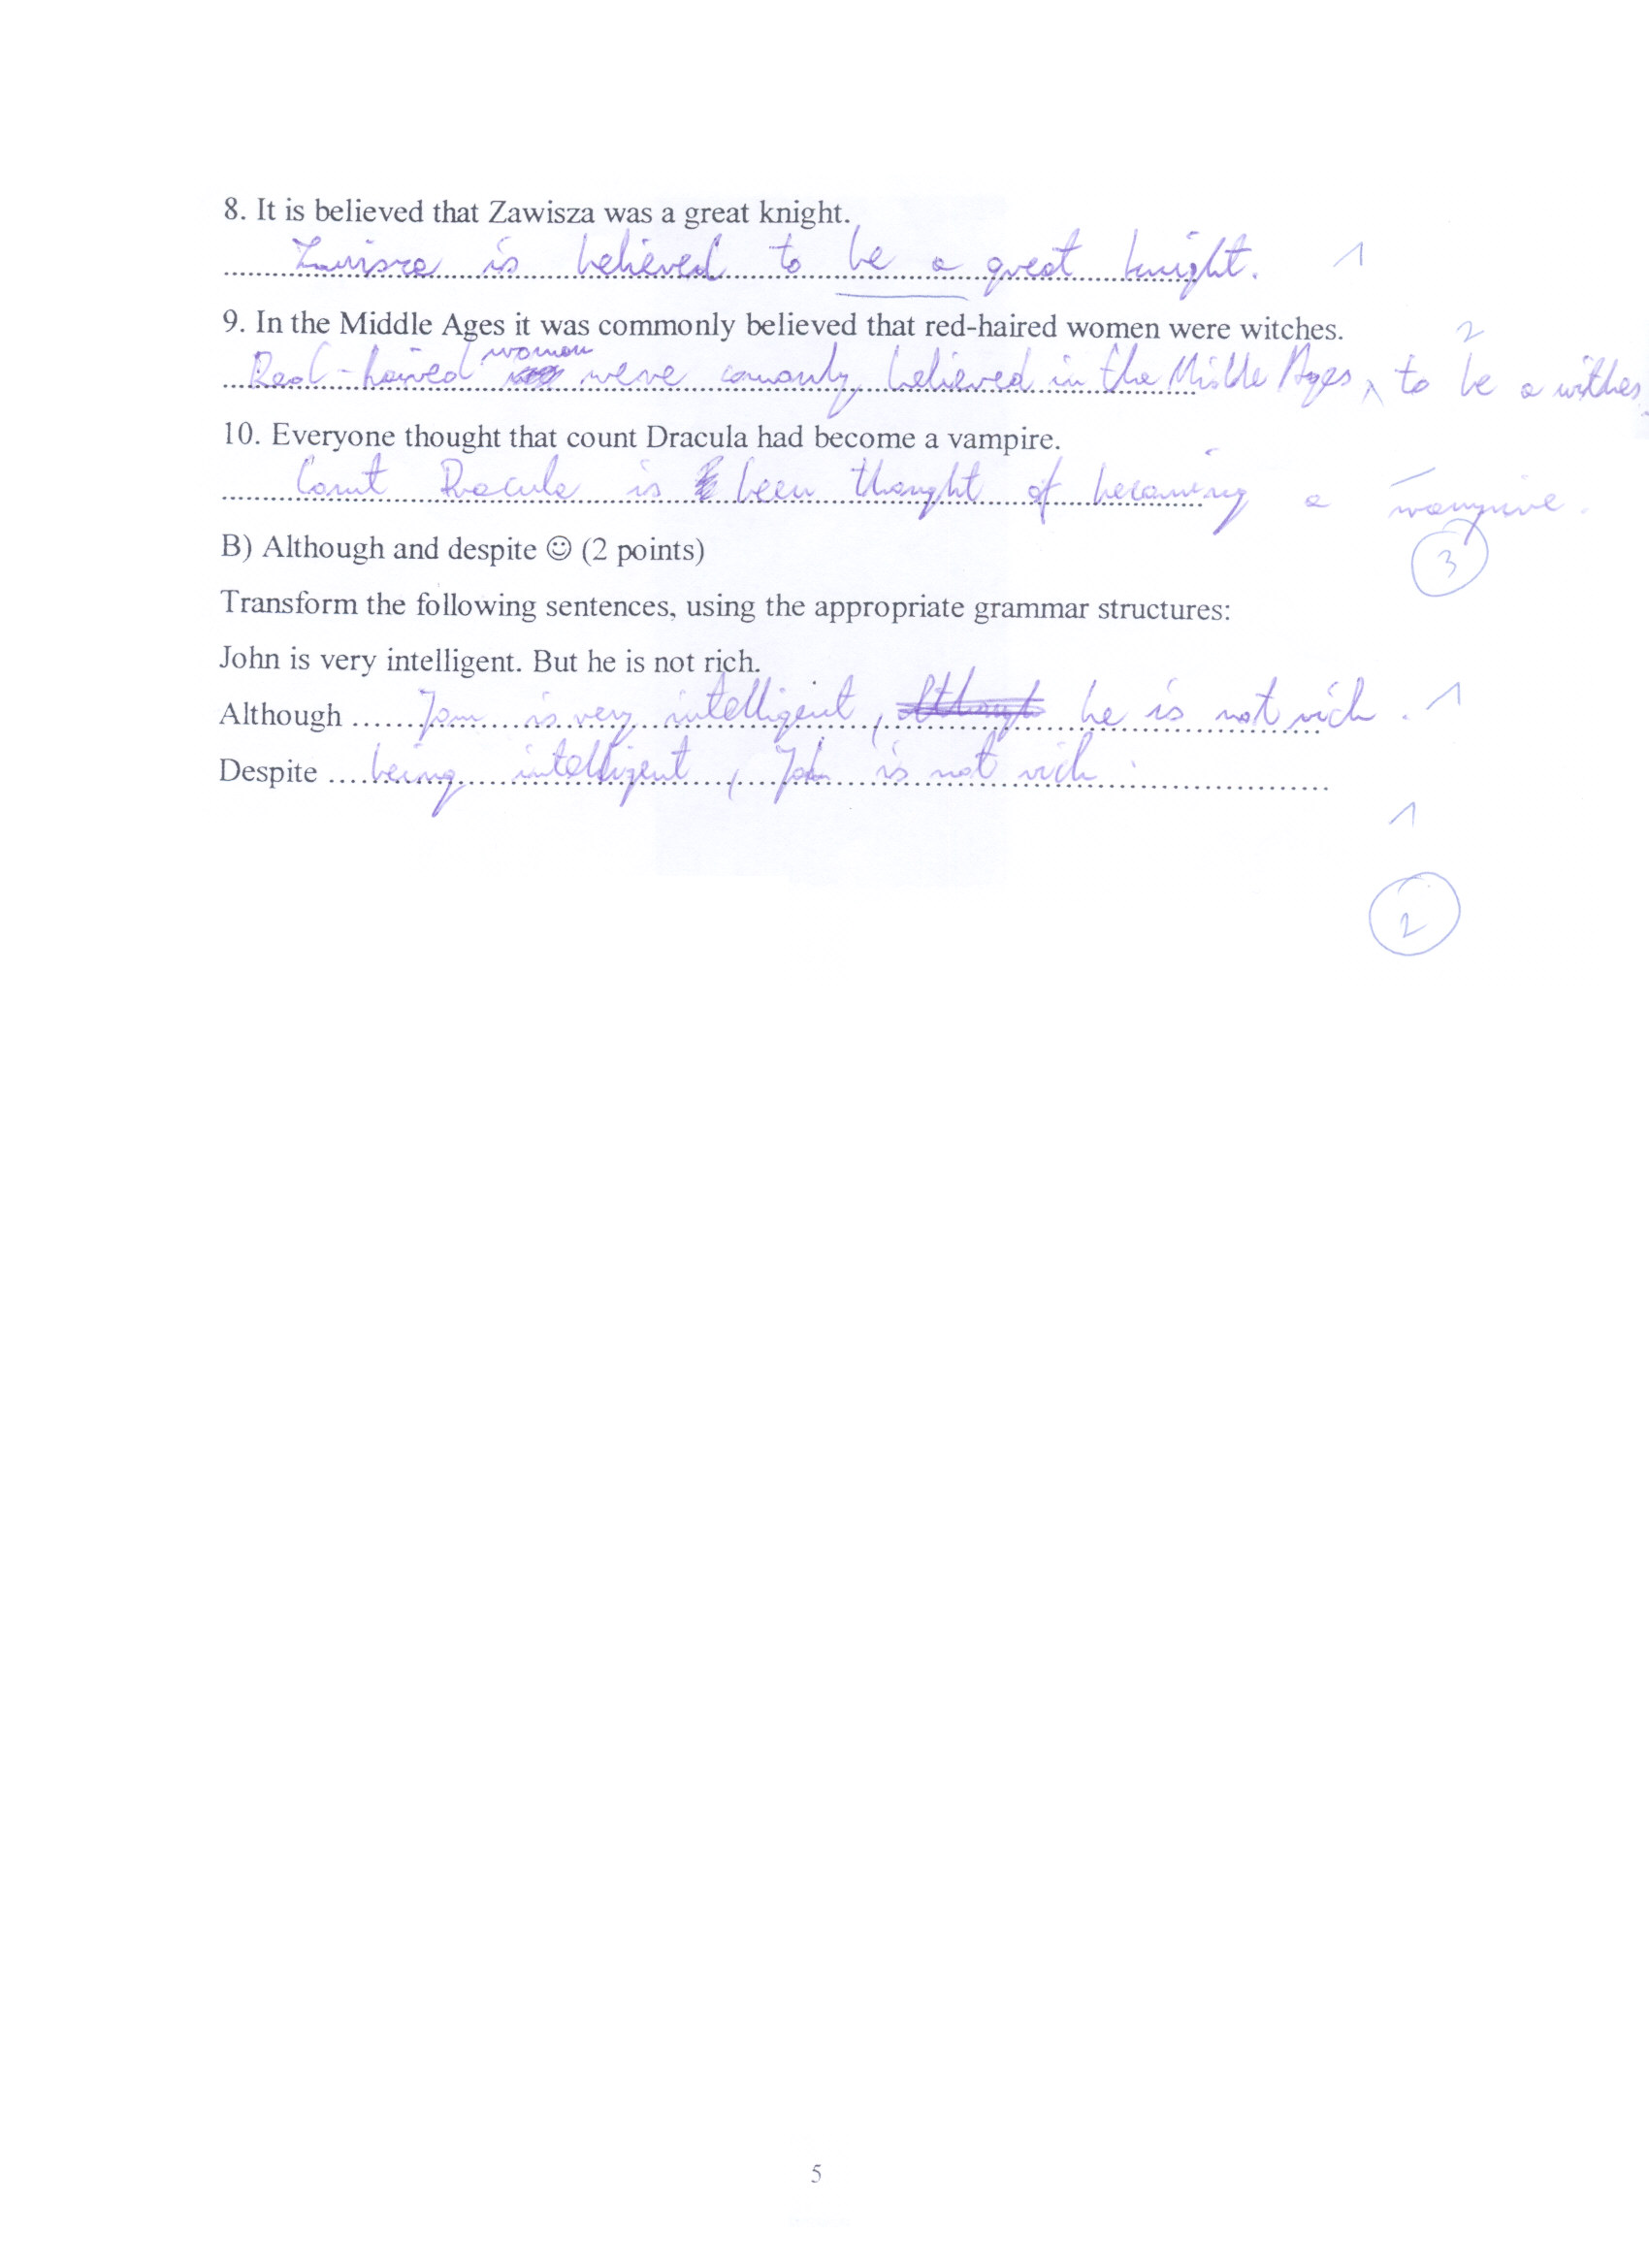 8. It is believed that Zawisza was a great knight.
Zawisza is believed to be a great knight. 1
9. In the Middle Ages it was commonly believed that red-haired women were witches. 2
women
Red-haired were comonly believed in the Middle Ages, to be a withes
10. Everyone thought that count Dracula had become a vampire.
Count Dracula is been thought of becoming a wampire.
3
B) Although and despite ☺ (2 points)
Transform the following sentences, using the appropriate grammar structures:
John is very intelligent. But he is not rich.
Although John is very intelligent, he is not rich. 1
Despite being intelligent, John is not rich.
1
2
5